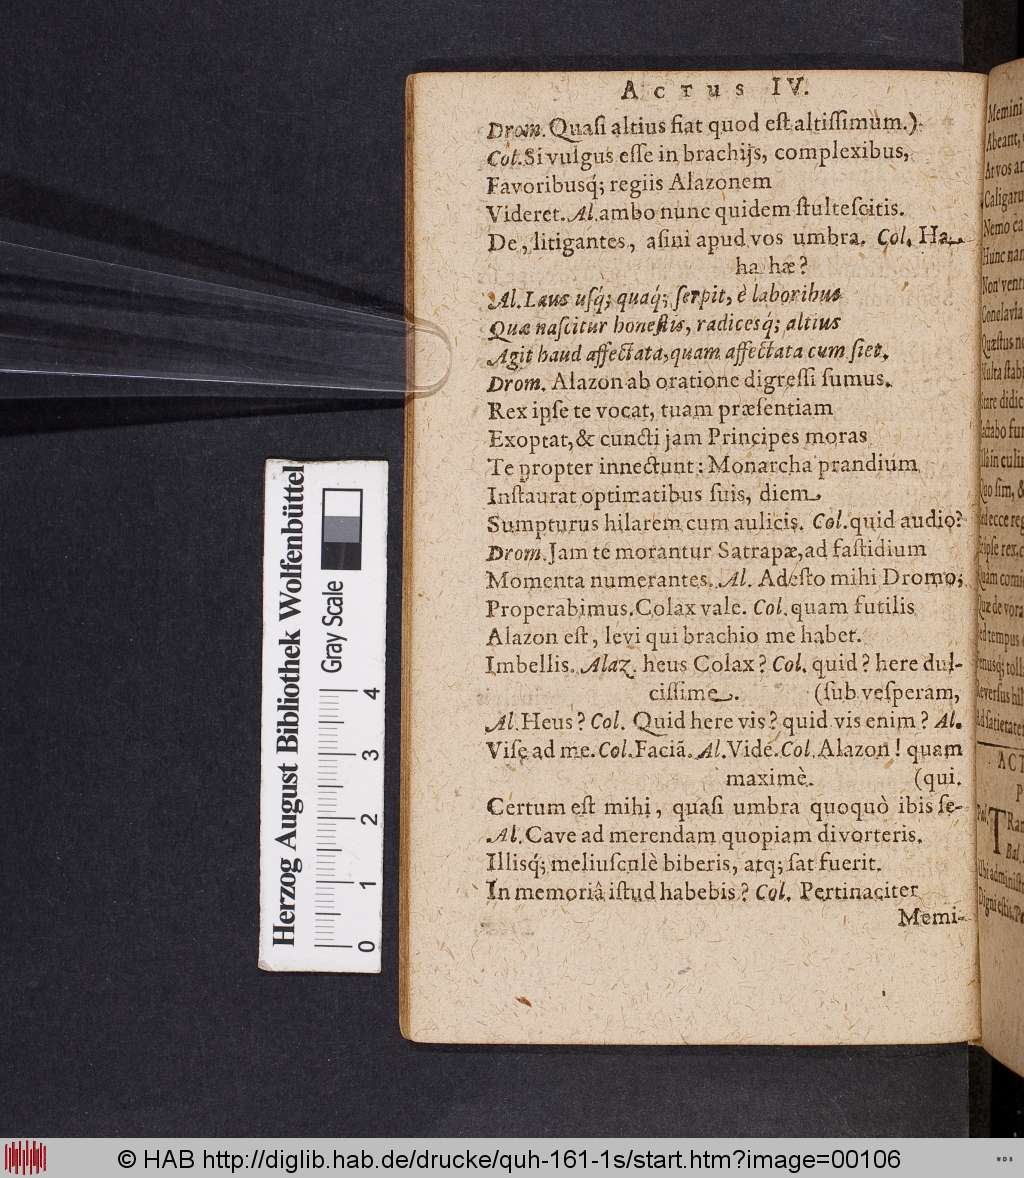 ACTUS IV.
Drom. Quasi altius fiat quod est altissimum.)
Col. Si vulgus esse in brachijs, complexibus,
Favoribusq́; regiis Alazonem
Videret. Al. ambo nunc quidem stultescitis.
De, litigantes, asini apud vos umbra. Col. Ha
ha hæ?
Al. Laus usq́; quaq́; serpit, è laboribus
Quæ nascitur honestis, radicesq́; altius
Agit haud affectata, quam affectata cum siet.
Drom. Alazon ab oratione digressi sumus.
Rex ipse te vocat, tuam præsentiam
Exoptat, & cuncti jam Principes moras
Te propter innectunt: Monarcha prandium
Instaurat optimatibus suis, diem
Sumpturus hilarem cum aulicis. Col. quid audio?
Drom. Jam te morantur Satrapæ, ad fastidium
Momenta numerantes. Al. Adesto mihi Dromo;
Properabimus. Colax vale. Col. quam futilis
Alazon est, levi qui brachio me habet.
Imbellis. Alaz. heus Colax? Col. quid? here dul-
cissime. (sub vesperam,
Al. Heus? Col. Quid here vis? quid vis enim? Al.
Vise ad me. Col. Faciã. Al. Vide. Col. Alazon! quam
maximè. (qui.
Certum est mihi, quasi umbra quoquò ibis se-
Al. Cave ad merendam quopiam divorteris.
Illisq́; meliusculè biberis, atq; sat fuerit.
In memoriâ istud habebis? Col. Pertinaciter
Memi-
Memini
Abeant,
At vos
Caligaru
Nemo
Hunc nar
Non venti
Quæstus
Herzog August Bibliothek Wolfenbüttel
Gray Scale
0 1 2 3 4
© HAB http://diglib.hab.de/drucke/quh-161-1s/start.htm?image=00106